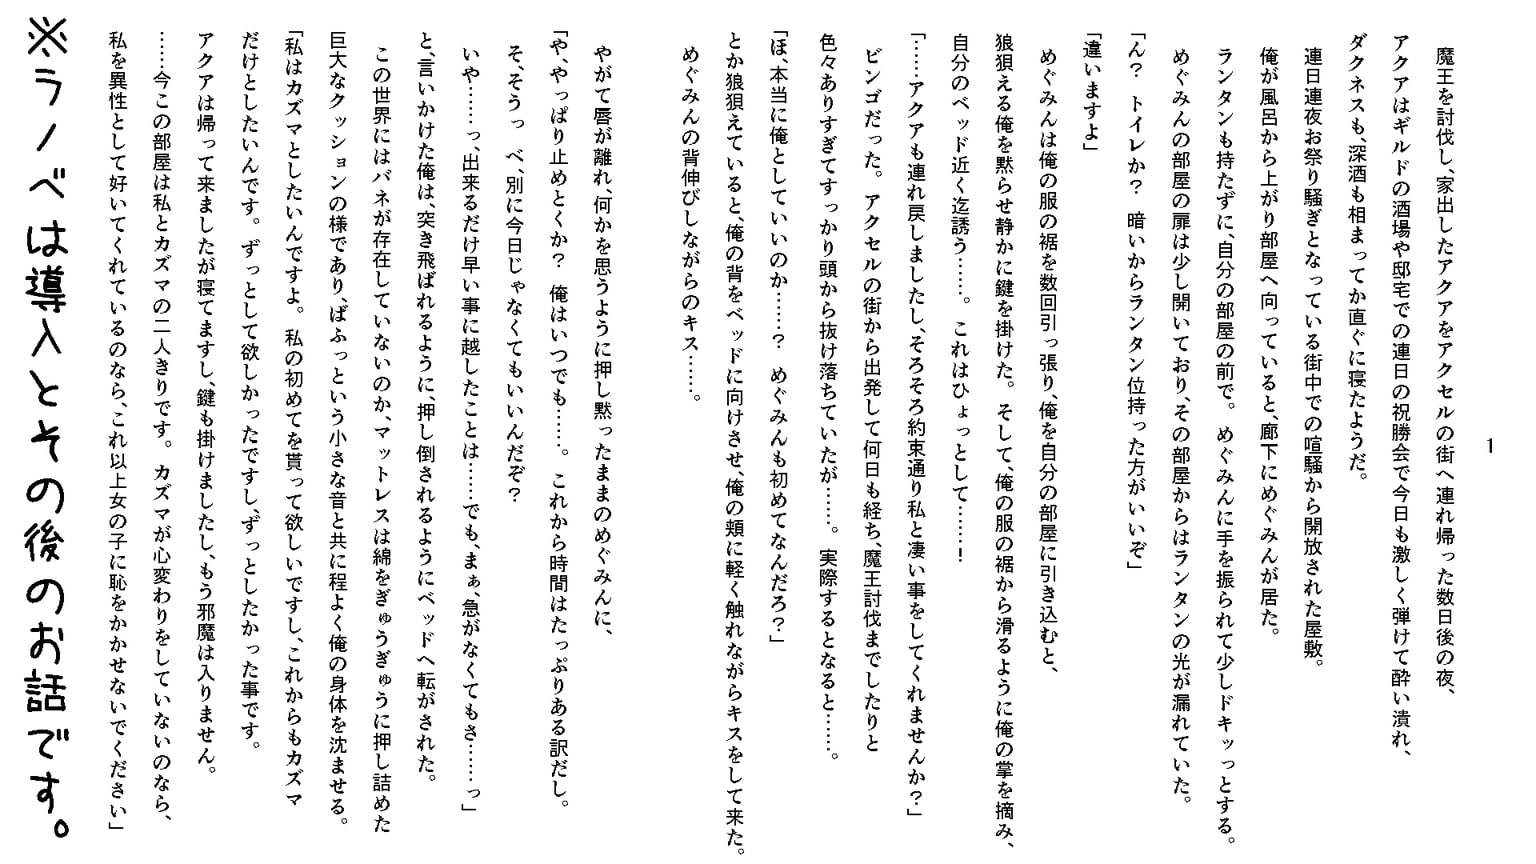 1
魔王を討伐し、家出したアクアをアクセルの街へ連れ帰った数日後の夜、
アクアはギルドの酒場や邸宅での連日の祝勝会で今日も激しく弾けて酔い潰れ、
ダクネスも、深酒も相まってか直ぐに寝たようだ。
連日連夜お祭り騒ぎとなっている街中での喧騒から開放された屋敷。
俺が風呂から上がり部屋へ向っていると、廊下にめぐみんが居た。
ランタンも持たずに、自分の部屋の前で。 めぐみんに手を振られて少しドキッっとする。
めぐみんの部屋の扉は少し開いており、その部屋からはランタンの光が漏れていた。
「ん？ トイレか？ 暗いからランタン位持った方がいいぞ」
「違いますよ」
めぐみんは俺の服の裾を数回引っ張り、俺を自分の部屋に引き込むと、
狼狽える俺を黙らせ静かに鍵を掛けた。 そして、俺の服の裾から滑るように俺の掌を摘み、
自分のベッド近く迄誘う……。 これはひょっとして……！
「……アクアも連れ戻しましたし、そろそろ約束通り私と凄い事をしてくれませんか？」
ビンゴだった。 アクセルの街から出発して何日も経ち、魔王討伐までしたりと
色々ありすぎてすっかり頭から抜け落ちていたが……。 実際するとなると……。
「ほ、本当に俺としていいのか……？ めぐみんも初めてなんだろ？」
とか狼狽えていると、俺の背をベッドに向けさせ、俺の頬に軽く触れながらキスをして来た。
めぐみんの背伸びしながらのキス……。
やがて唇が離れ、何かを思うように押し黙ったままのめぐみんに、
「や、やっぱり止めとくか？ 俺はいつでも……。 これから時間はたっぷりある訳だし。
そ、そうっ べ、別に今日じゃなくてもいいんだぞ？
いや……っ、出来るだけ早い事に越したことは……でも、まぁ、急がなくてもさ……っ」
と、言いかけた俺は、突き飛ばれるように、押し倒されるようにベッドへ転がされた。
この世界にはバネが存在していないのか、マットレスは綿をぎゅうぎゅうに押し詰めた
巨大なクッションの様であり、ばふっという小さな音と共に程よく俺の身体を沈ませる。
「私はカズマとしたいんですよ。 私の初めてを貰って欲しいですし、これからもカズマ
だけとしたいんです。 ずっとして欲しかったですし、ずっとしたかった事です。
アクアは帰って来ましたが寝てますし、鍵も掛けましたし、もう邪魔は入りません。
……今この部屋は私とカズマの二人きりです。 カズマが心変わりをしていないのなら、
私を異性として好いてくれているのなら、これ以上女の子に恥をかかせないでください」
※ラノベは導入とその後のお話です。